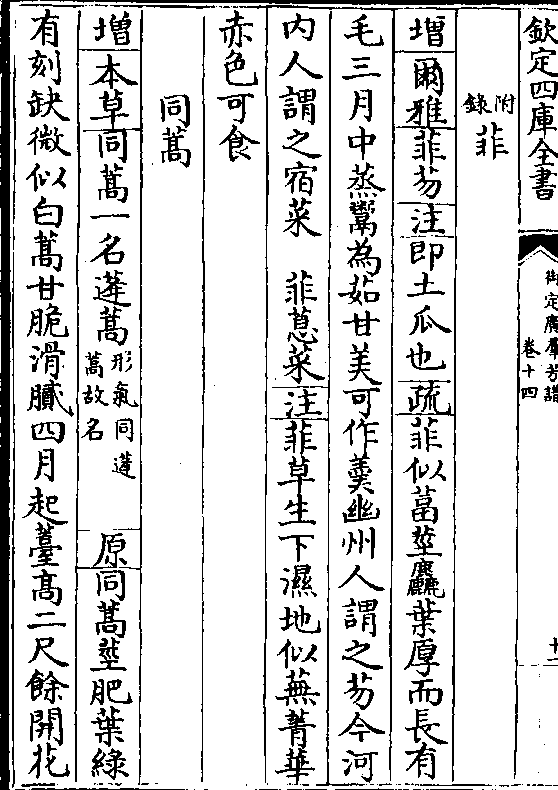 欽定四庫全書
御定廣羣芳譜
卷十四
附錄
菲
增爾雅菲芴注即土瓜也疏菲似葍莖麤葉厚而長有
毛三月中蒸鬻為茹甘美可作羹幽州人謂之芴今河
内人謂之宿菜 菲蒠菜注菲草生下濕地似蕪菁華
赤色可食
同蒿
增本草同蒿一名蓬蒿形氣同蓬蒿故名 原同蒿莖肥葉綠
有刻缺微似白蒿甘脆滑膩四月起薹高二尺餘開花